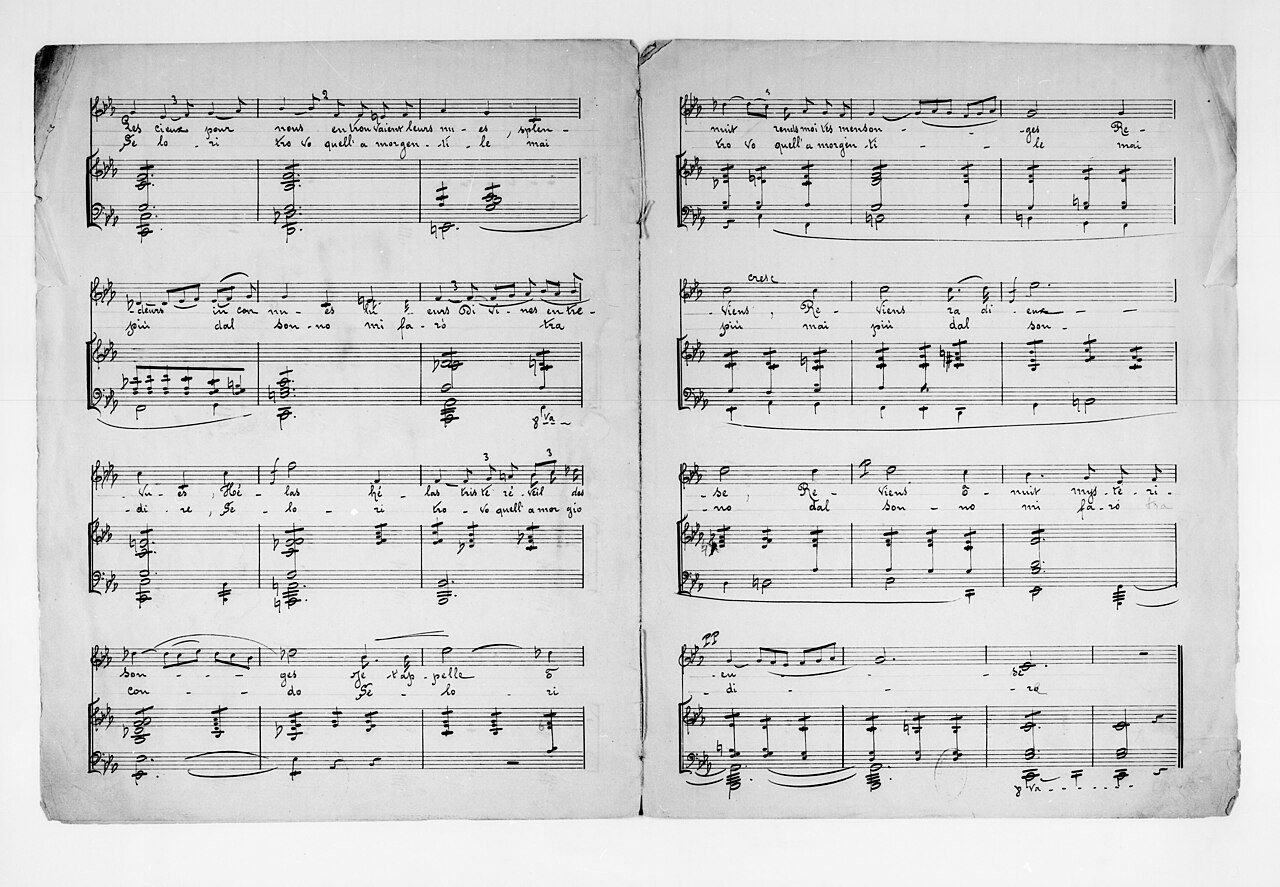 Les cieux pour nous entrouvaient leurs nu - es, splen -
Se lo - ri tro vo quell'a mor gen - ti - le mai
- deurs in con nu - es lu - eurs Di vi - nes entre -
più dal son - no mi fa - rò tra
- vu - es, Hé - las hé - las triste ré - veil des
- di - re, Se - lo - ri tro - vo quell'a mor gio
son - - - ges Je - t'ap - pelle ô
con - - - do Se - lo - ri
nuit rends moi tes menson - - - ges Re -
tro vo quell'a mor gen - ti - - - le mai
cresc
- viens, Re - viens ra di - euse - -
più mai più dal son -
- se, Re - viens ô - nuit mys - té - ri -
- no dal son - no mi fa - rò tra
pp
- eu - - - - se
- di - - - re
8va